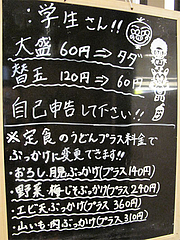 !!学生さん!!
大盛 60円⇒タダ
替玉 120円⇒60円
自己申告して下さい!!
※定食のうどんプラス料金で
ぶっかけに変更できます!!
・おろし、月見ぶっかけ(プラス140円)
・野菜・梅じそぶっかけ(プラス240円)
・エビ天ぶっかけ(プラス360円)
・山いも・肉ぶっかけ(プラス310円)